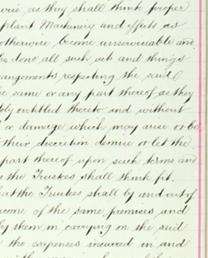 wise as they shall think proper
plant Machinery and effects as
otherwise become unserviceable and
be done all such acts and things
arrangements respecting the said
the same or any part thereof as they
entitled thereto and without
or damage which may arise or be
their discretion demise or let the
part thereof upon such terms and
the Trustees shall think fit.
that the Trustees shall by and out of
income of the same premises and
by them in carrying on the said
the expenses incurred in and